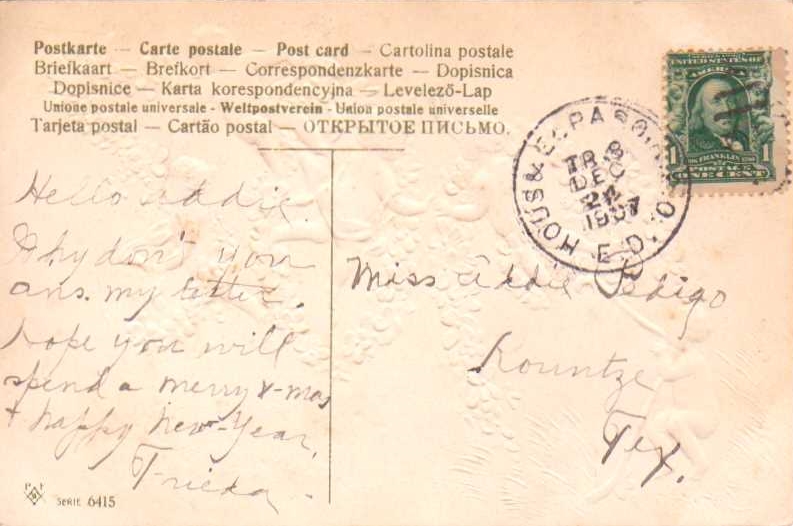 Postkarte — Carte postale — Post card — Cartolina postale
Briefkaart — Brefkort — Correspondenzkarte — Dopisnica
Dopisnice — Karta korespondencyjna — Levelező-Lap
Unione postale universale - Weltpostverein - Union postale universelle
Tarjeta postal — Cartão postal — ОТКРЫТОЕ ПИСЬМО.
Hello Addie.
Why don't you
ans. my letter.
Hope you will
spend a merry x-mas
+ happy New-Year,
Frieda.
SERIE 6415
HOUS & EL PASO R.P.O.
TR. 8
DEC
24
1907
E.D.
UNITED STATES OF
AMERICA
1 FRANKLIN 1
POSTAGE
ONE CENT
Miss Addie Pedigo
Kountze
Tex.